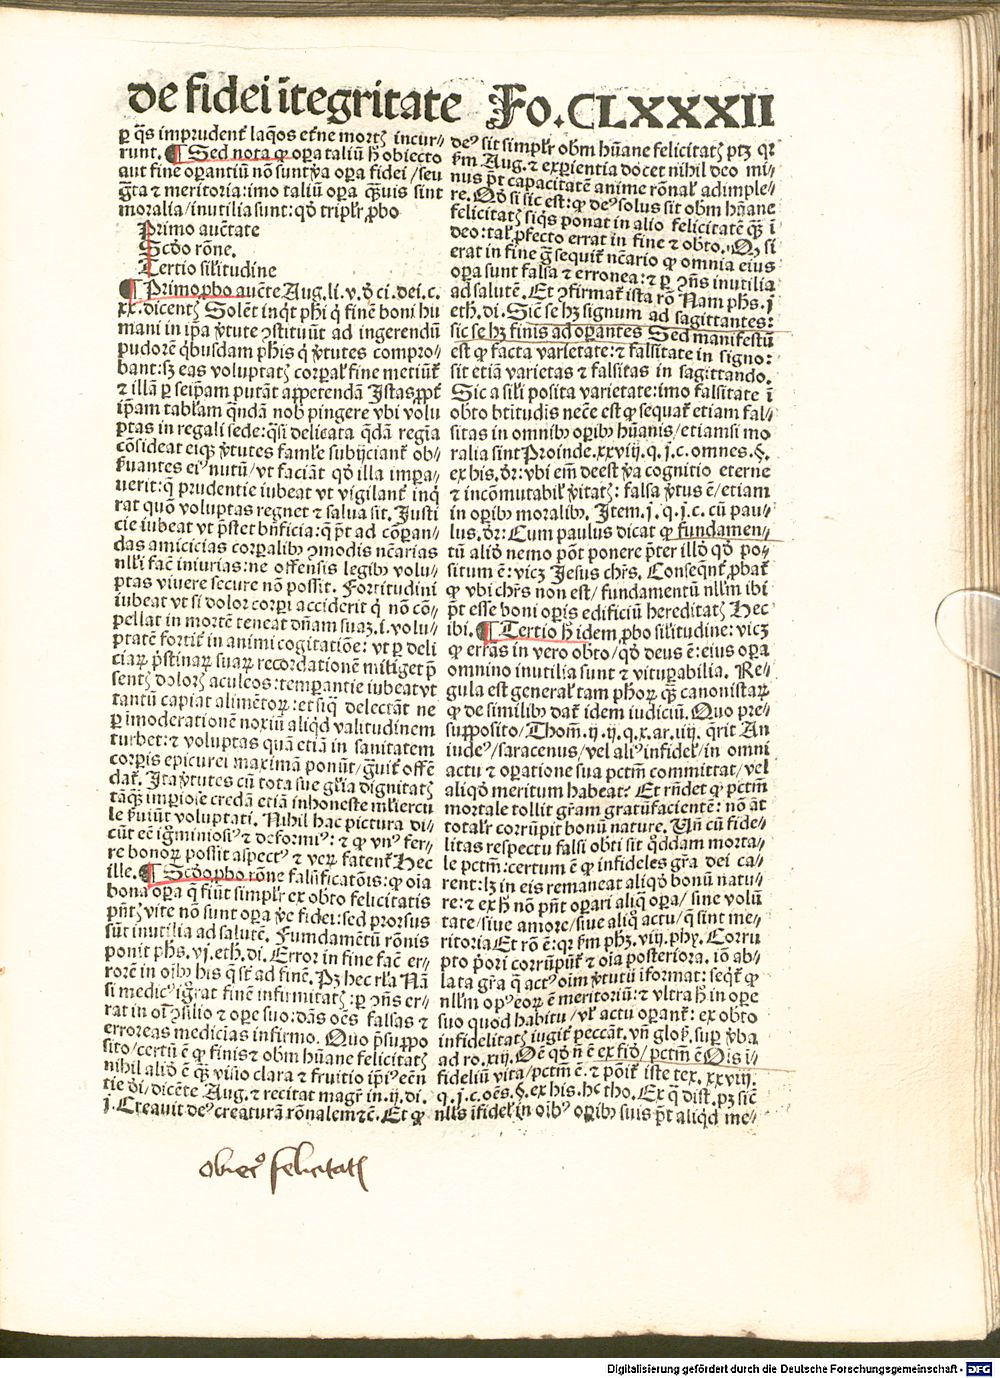 de fidei ītegritate Fo.CLXXXII
ꝑ q̄s imprudent᷑ laq̄os et̄ne mortꝭ incur⸗
runt. ¶ Sed nota ꝙ oꝑa taliū h̄ obiecto
aut fine oꝑantiū nō sunt v̄a oꝑa fidei/seu
gr̄a ⁊ meritoria: imo taliū oꝑa q̄uis sint
moralia/inutilia sunt: qḋ triplr̄ ꝓbo
Primo auc̄tate
Scḋo rōne.
Tertio sil̄itudine
¶ Primo ꝓbo auc̄te Aug. li. v. ḋ ci. dei. c.
xx. dicentꝭ Solēt inq̇t phī q̇ finē boni hu
mani in ip̄a v̄tute ꝯstituūt ad ingerendū
pudorē q̇busdam phīs q̇ v̄tutes compro⸗
bant: sꝫ eas voluptatꝭ corꝑal̄ fine metiūt᷑
⁊ illā ꝑ seip̄am putāt appetendā Istas ꝓpt̄
ip̄am tabl̄am q̄ndā nob̄ pingere vbi volu
ptas in regali sede: q̄si delicata q̄dā regīa
cōsideat eiq̨ v̄tutes faml̄e subijciant᷑ ob⸗
ẜuantes eiꝰ nutū/vt faciāt qḋ illa impa⸗
uerit: q̄ prudentie iubeat vt vigilant᷑ inq̇
rat quō voluptas regnet ⁊ salua sit. Justi
cie iubeat vt p̄stet bn̄ficia: q̄ p̄t ad cōꝑan⸗
das amicicias corꝑalibꝫ ꝯmodis nc̄arias
nll̄i fac̄ iniurias: ne offensis legibꝫ volu⸗
ptas viuere secure nō possit. Fortitudini
iubeat vt si dolor corꝑi acciderit q̇ nō cō⸗
pellat in mortē teneat dn̄am suaꝫ. i. volu⸗
ptatē fortit᷑ in animi cogitatiōe: vt ꝑ deli
ciaꝝ p̄stinaꝝ suaꝝ recordationē mitiget p̄
sentꝭ dolorꝭ aculeos: temꝑantie iubeat vt
tantū capiat alimētoꝝ: et siq̄ delectāt ne
ꝑ īmoderationē noxiū aliqḋ valitudinem
turbet: ⁊ voluptas quā etiā in sanitatem
corꝑis epicurei maximā ponūt/gͣuit᷑ offē
dat᷑. Ita v̄tutes cū tota sue gl̄ia dignitatꝭ
tāq̄ꝫ imperiose credā etiā inhoneste ml̄iercu
le ẜuiūt voluptati. Nihil hac pictura di⸗
cūt eē ignominiosiꝰ ⁊ deformiꝰ: ⁊ ꝙ vnꝰ fer⸗
re bonoꝝ possit aspectꝰ ⁊ veꝝ fatent᷑ Hec
ille. ¶ Scḋo ꝓbo rōne falsificatōis: ꝙ oīa
bona oꝑa q̄ fiūt simplr̄ ex obto felicitatis
pn̄tꝭ vite nō sunt oꝑa v̄e fidei: sed prorsus
sūt inutilia ad salutē. Fundamētū rōnis
ponit phs. vj. eth. di. Error in fine fac̄ er⸗
rorē in oībꝫ his q̄ sūt ad finē. Pꝫ hec rl̄a Nā
si medicꝰ ignrat finē infirmitatꝭ: ꝑ ꝯn̄s er⸗
rat in oī ꝯsilio ⁊ oꝑe suo: dās oēs falsas ⁊
erroneas medicias infirmo. Quo p̄suppo
sito/certū ē ꝙ finis ⁊ obm hūane felicitatꝭ
nihil aliḋ ē q̄ꝫ visio clara ⁊ fruitio ip̄ꝰ eēn
tie ḋi/dicēte Aug. ⁊ recitat magr̄ in. ij. di.
j. Creauit deꝰ creaturā rōnalem ⁊c̄. Et ꝙ
deꝰ sit simplr̄ obm hūane felicitatꝭ ptꝫ qꝛ
ẜm Aug. ⁊ exꝑientia docet nihil deo mi⸗
nus p̄t capacitatē anime rōnal̄ adimple⸗
re. Qḋ si sic est: ꝙ deꝰ solus sit obm hūane
felicitatꝭ siq̇s ponat in alio felicitatē q̄ꝫ ī
deo: tal̄ ꝓfecto errat in fine ⁊ obto. Qḋ si
erat in fine ḡ sequit᷑ nc̄ario ꝙ omnia eius
oꝑa sunt falsa ⁊ erronea: ⁊ ꝑ ꝯn̄s inutilia
ad salutē. Et ꝯfirmat᷑ ista rō Nam phs. j
eth. di. Sic̄ se hꝫ signum ad sagittantes:
sic se hꝫ finis ad oꝑantes Sed manifestū
est ꝙ facta varietate: ⁊ falsitate in signo:
sit etiā varietas ⁊ falsitas in sagittando.
Sic a sil̄i posita varietate: imo falsitate ī
obto btitudis nec̄e est ꝙ sequat᷑ etiam fal⸗
sitas in omnibꝫ oꝑibꝫ hūanis/etiamsi mo
ralia sint Proinde. xxviij. q. j. c. omnes. §.
ex his. ḋr: vbi em̄ deest v̄a cognitio eterne
⁊ incōmutabil̄ v̄itatꝭ: falsa v̄tus ē/etiam
in oꝑibꝫ moralibꝫ. Item. j. q. j. c. cū pau⸗
lus. ḋr: Cum paulus dicat ꝙ fundamen⸗
tū aliḋ nemo pōt ponere p̄ter illḋ qḋ po⸗
situm ē: vicꝫ Jesus chrs̄. Conseqn̄t᷑ ꝓbat᷑
ꝙ vbi chrs̄ non est/fundamentū nll̄m ibi
p̄t esse boni oꝑis edificiū hereditatꝭ Hec
ibi. ¶ Tertio h̄ idem ꝓbo sil̄itudine: vicꝫ
ꝙ errās in vero obto/qḋ deus ē: eius oꝑa
omnino inutilia sunt ⁊ vituꝑabilia. Re⸗
gula est general̄ tam phoꝝ q̄ꝫ canonistaꝝ
ꝙ de similibꝫ dat᷑ idem iudiciū. Quo pre⸗
supposito/Thom̄. ij. ij. q. x. ar. iiij. q̄rit An
iudeꝰ/saracenus/vel aliꝰ infidel̄/in omni
actu ⁊ oꝑatione sua pctm̄ committat/vel
aliqḋ meritum habeat? Et rn̄det ꝙ pctm̄
mortale tollit gr̄am gratūfacientē: nō āt
totalr̄ corrūpit bonū nature. Vn̄ cū fide⸗
litas respectu falsi obti sit qḋdam morta⸗
le pctm̄: certum ē ꝙ infideles gr̄a dei ca⸗
rent: lꝫ in eis remaneat aliqḋ bonū natu⸗
re: ⁊ ex h̄ nō pn̄t oꝑari aliq̄ oꝑa/ sine volū
tate/siue amore/siue aliq̄ actu/q̄ sint me⸗
ritoria Et rō ē: qꝛ ẜm phꝫ. viij. phy. Corru
pto p̄ori corrūpūt᷑ ⁊ oīa posteriora. iō ab⸗
lata gr̄a q̄ actꝰ oīm v̄tutū iformat: seq̇t᷑ ꝙ
nll̄m opꝰ eoꝝ ē meritoriū: ⁊ vltra h̄ in oꝑe
suo quod habitu/vl̄ actu oꝑant᷑: ex obto
infidelitatꝭ iugit᷑ peccāt. vn̄ glos. suꝑ v̄ba
ad ro. xiij. Oē qḋ n̄ ē ex fiḋ/pctm̄ ē Ois ī⸗
fideliū vita/pctm̄ ē. ⁊ pōit᷑ iste tex. xxviij.
q. j. c. oēs. §. ex his. hͨ tho. Ex q̇ dist. pꝫ sic̄
nll̄s ifidel̄ in oībꝰ oꝑibꝫ suis p̄t aliqḋ me⸗
obiecꝰ felicitatꝭ
Digitalisierung gefördert durch die Deutsche Forschungsgemeinschaft - DFG